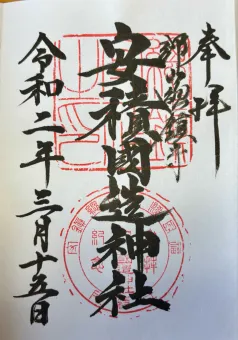 奉拝
郡山総鎮守
安積國造神社
令和二年三月十五日